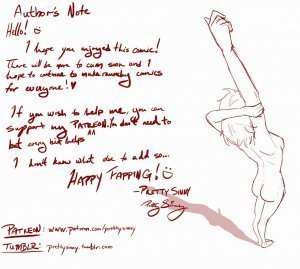 Author's Note
Hello! ☺
I hope you enjoyed this comic!
There will be more to come soon and I
hope to continue to make raunchy comics
for everyone! ♥
If you wish to help me, you can
support my PATREON. You don't need to
but every bit helps ^^
I don't know what else to add so...
HAPPY FAPPING! ☺
- PRETTY SINNY
PATREON: www.patreon.com/prettysinny
TUMBLR: prettysinny.tumblr.com